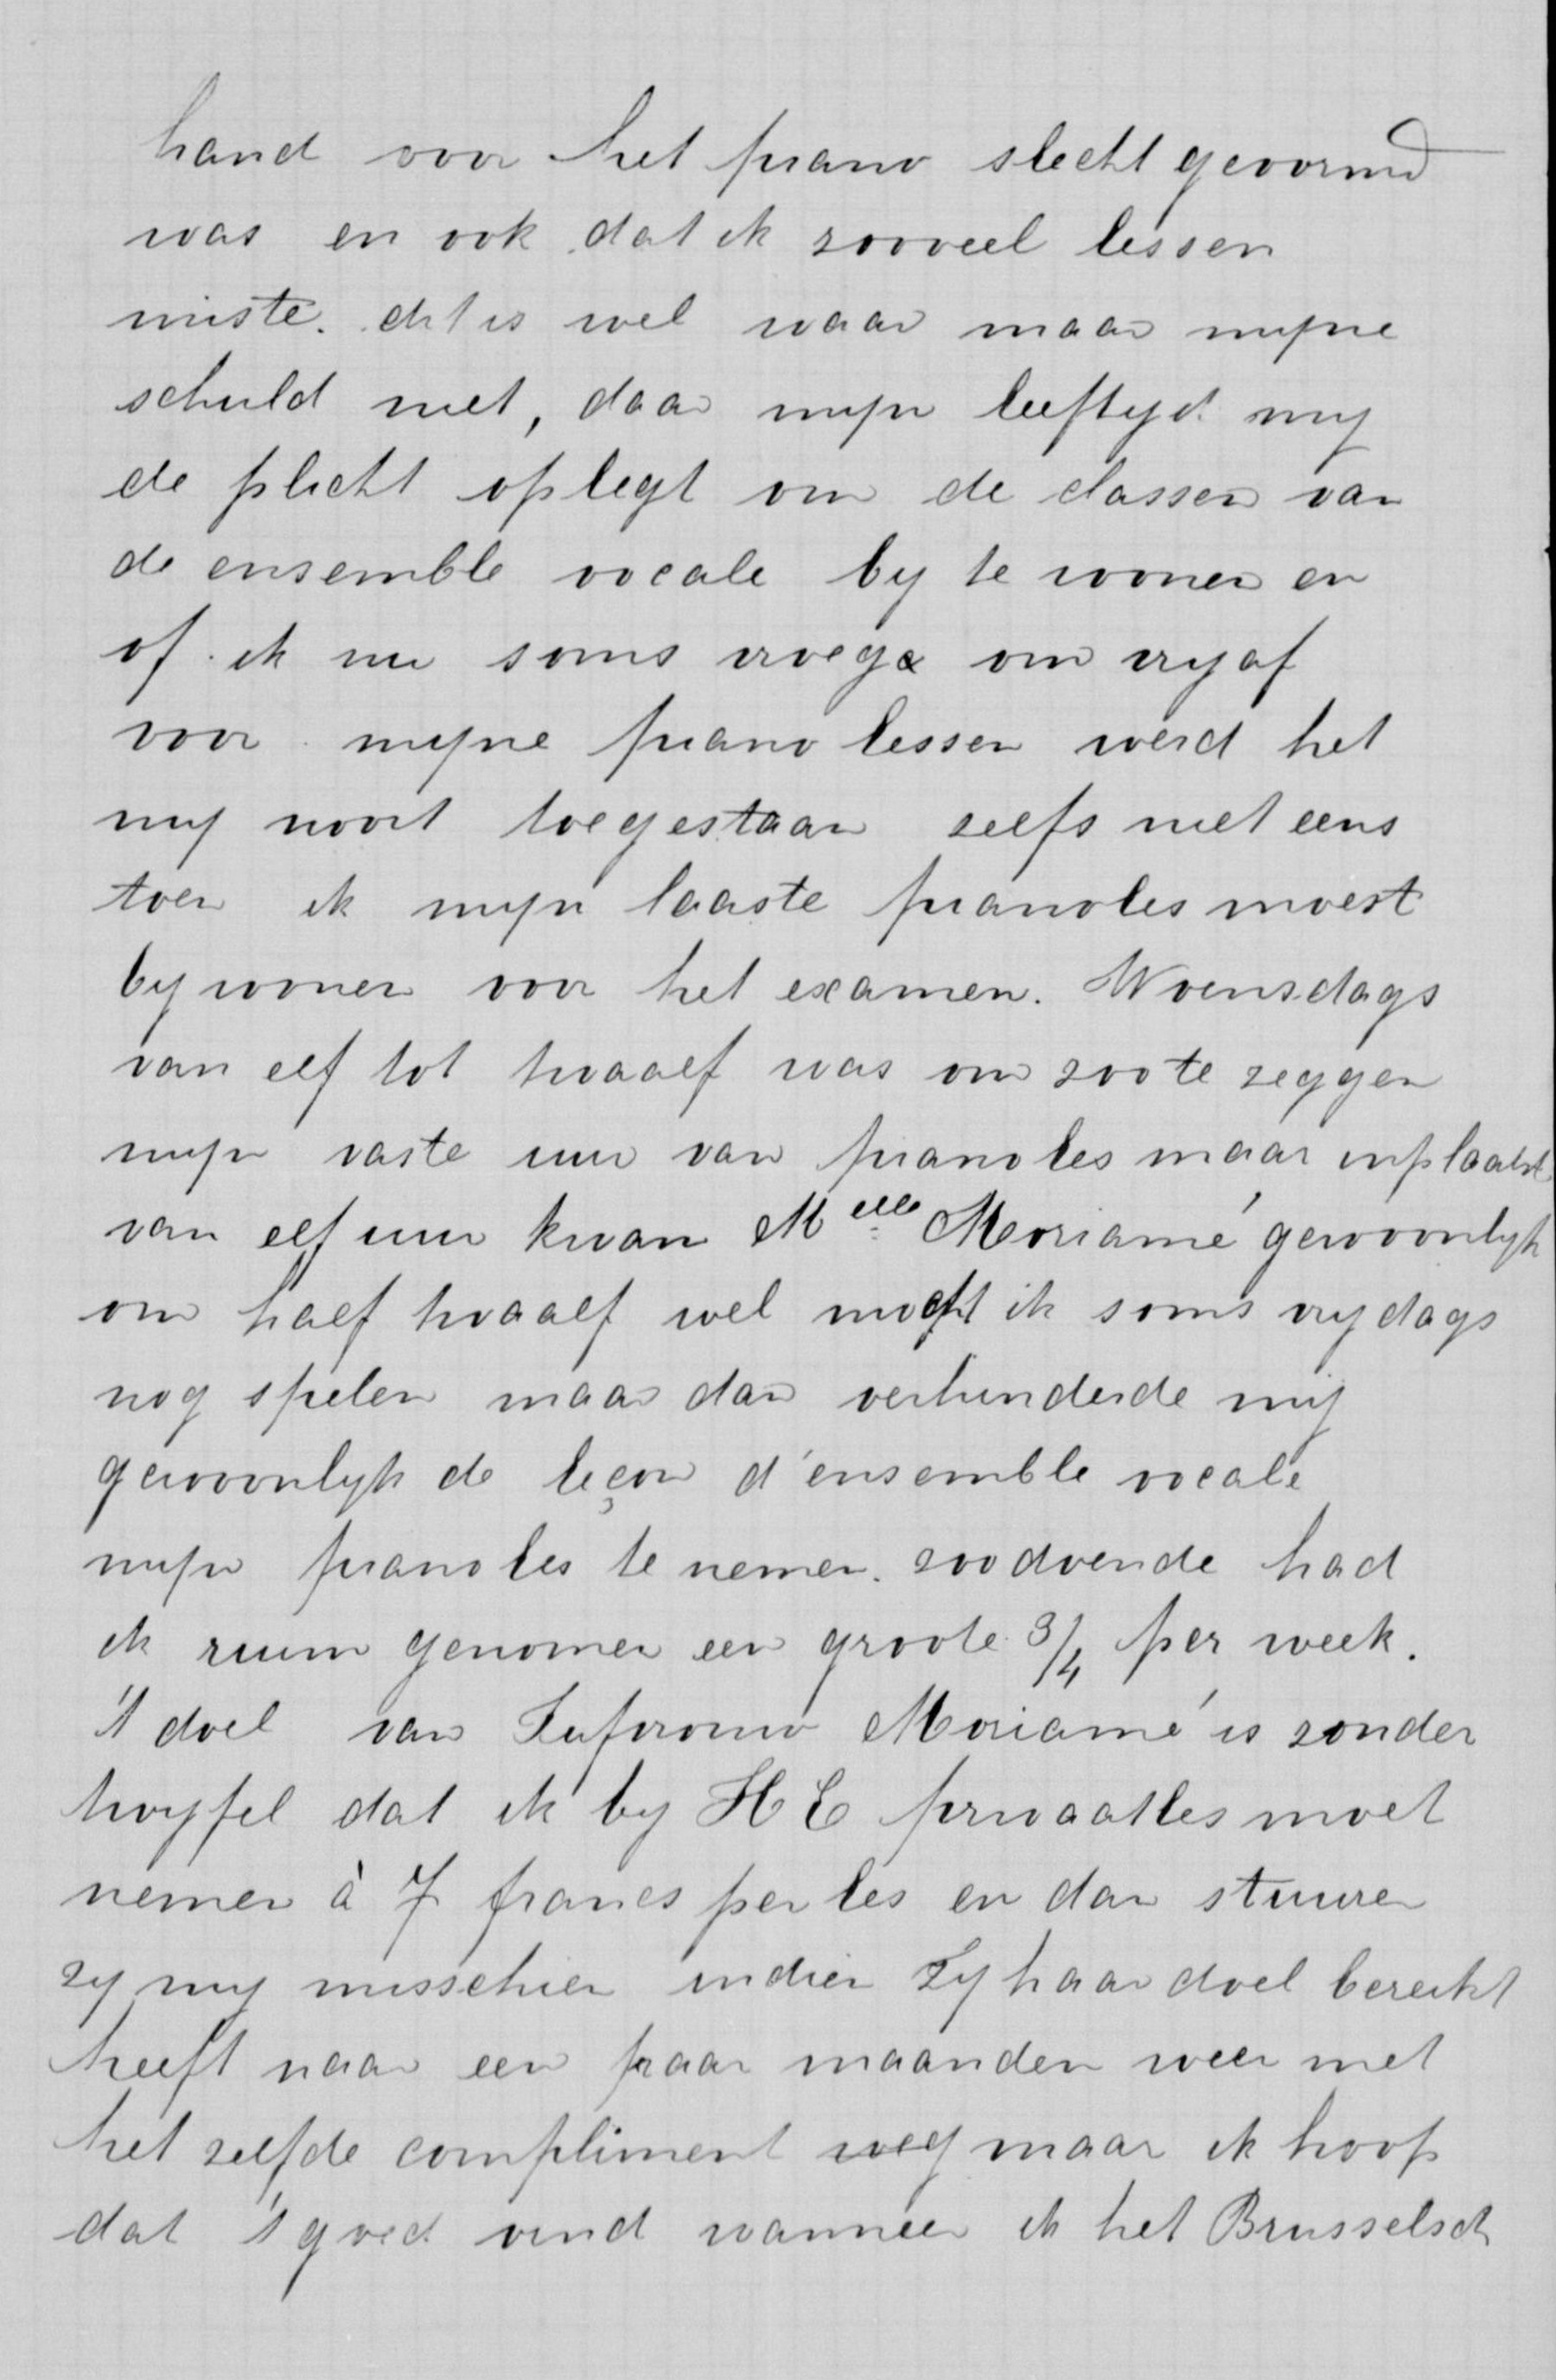 hand voor het piano slecht gevormd
was en ook dat ik zooveel lessen
miste. dit is wel waar maar mijne
schuld niet, daar mijn leeftijd mij
de plicht oplegt om de classen van
de ensemble vocale by te wonen en
of ik nu soms vroeg om vryaf
voor mijne piano lessen werd het
mij nooit toegestaan zelfs niet eens
toen ik mijn laaste pianoles moest
bywonen voor het examen. Woensdags
van elf tot twaalf was om zoo te zeggen
mijn vaste uur van pianoles maar inplaatst
van elf uur kwam Melle Moriamé gewoonlyk
om half twaalf wel mocht ik soms vrydags
nog spelen maar dan verhinderde mij
gewoonlyk de leçon d'ensemble vocale
mijn pianoles te nemen. zoodoende had
ik ruim genomen een groote 3/4 per week.
't doel van Jufrouw Moriamé is zonder
twyfel dat ik by H E privaatles moet
nemen à 7 francs per les en dan stuuren
zy my misschien indien zy haar doel bereikt
heeft naar een paar maanden weer met
het zelfde compliment weg maar ik hoop
dat 't goed vind wanneer ik het Brusselsch